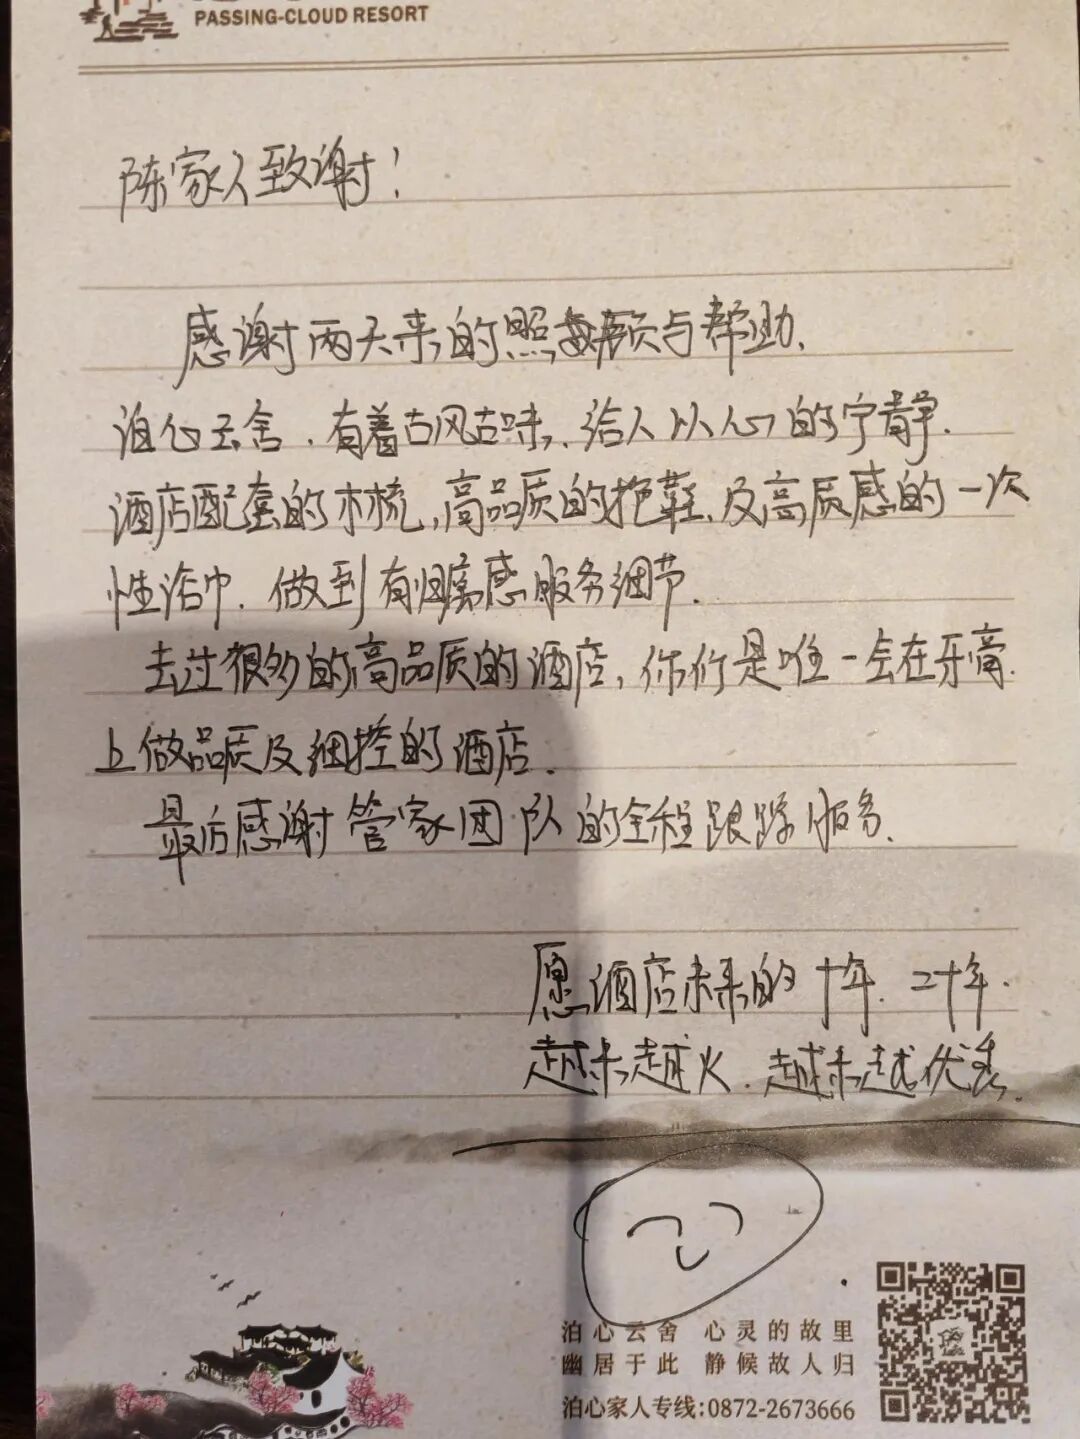 PASSING-CLOUD RESORT
陈家人致谢！
感谢两天来的照顾与帮助.
泊心云舍.有着古风古味.给人以心的宁静.
酒店配套的木梳,高品质的拖鞋.及高质感的一次
性浴巾.做到有归属感服务细节.
去过很多的高品质的酒店,你们是唯一会在牙膏.
上做品质及细控的酒店.
最后感谢管家团队的全程跟踪服务.
愿酒店未来的十年.二十年.
越来越火.越来越优秀.
泊心云舍 心灵的故里
幽居于此 静候故人归
泊心家人专线:0872-2673666